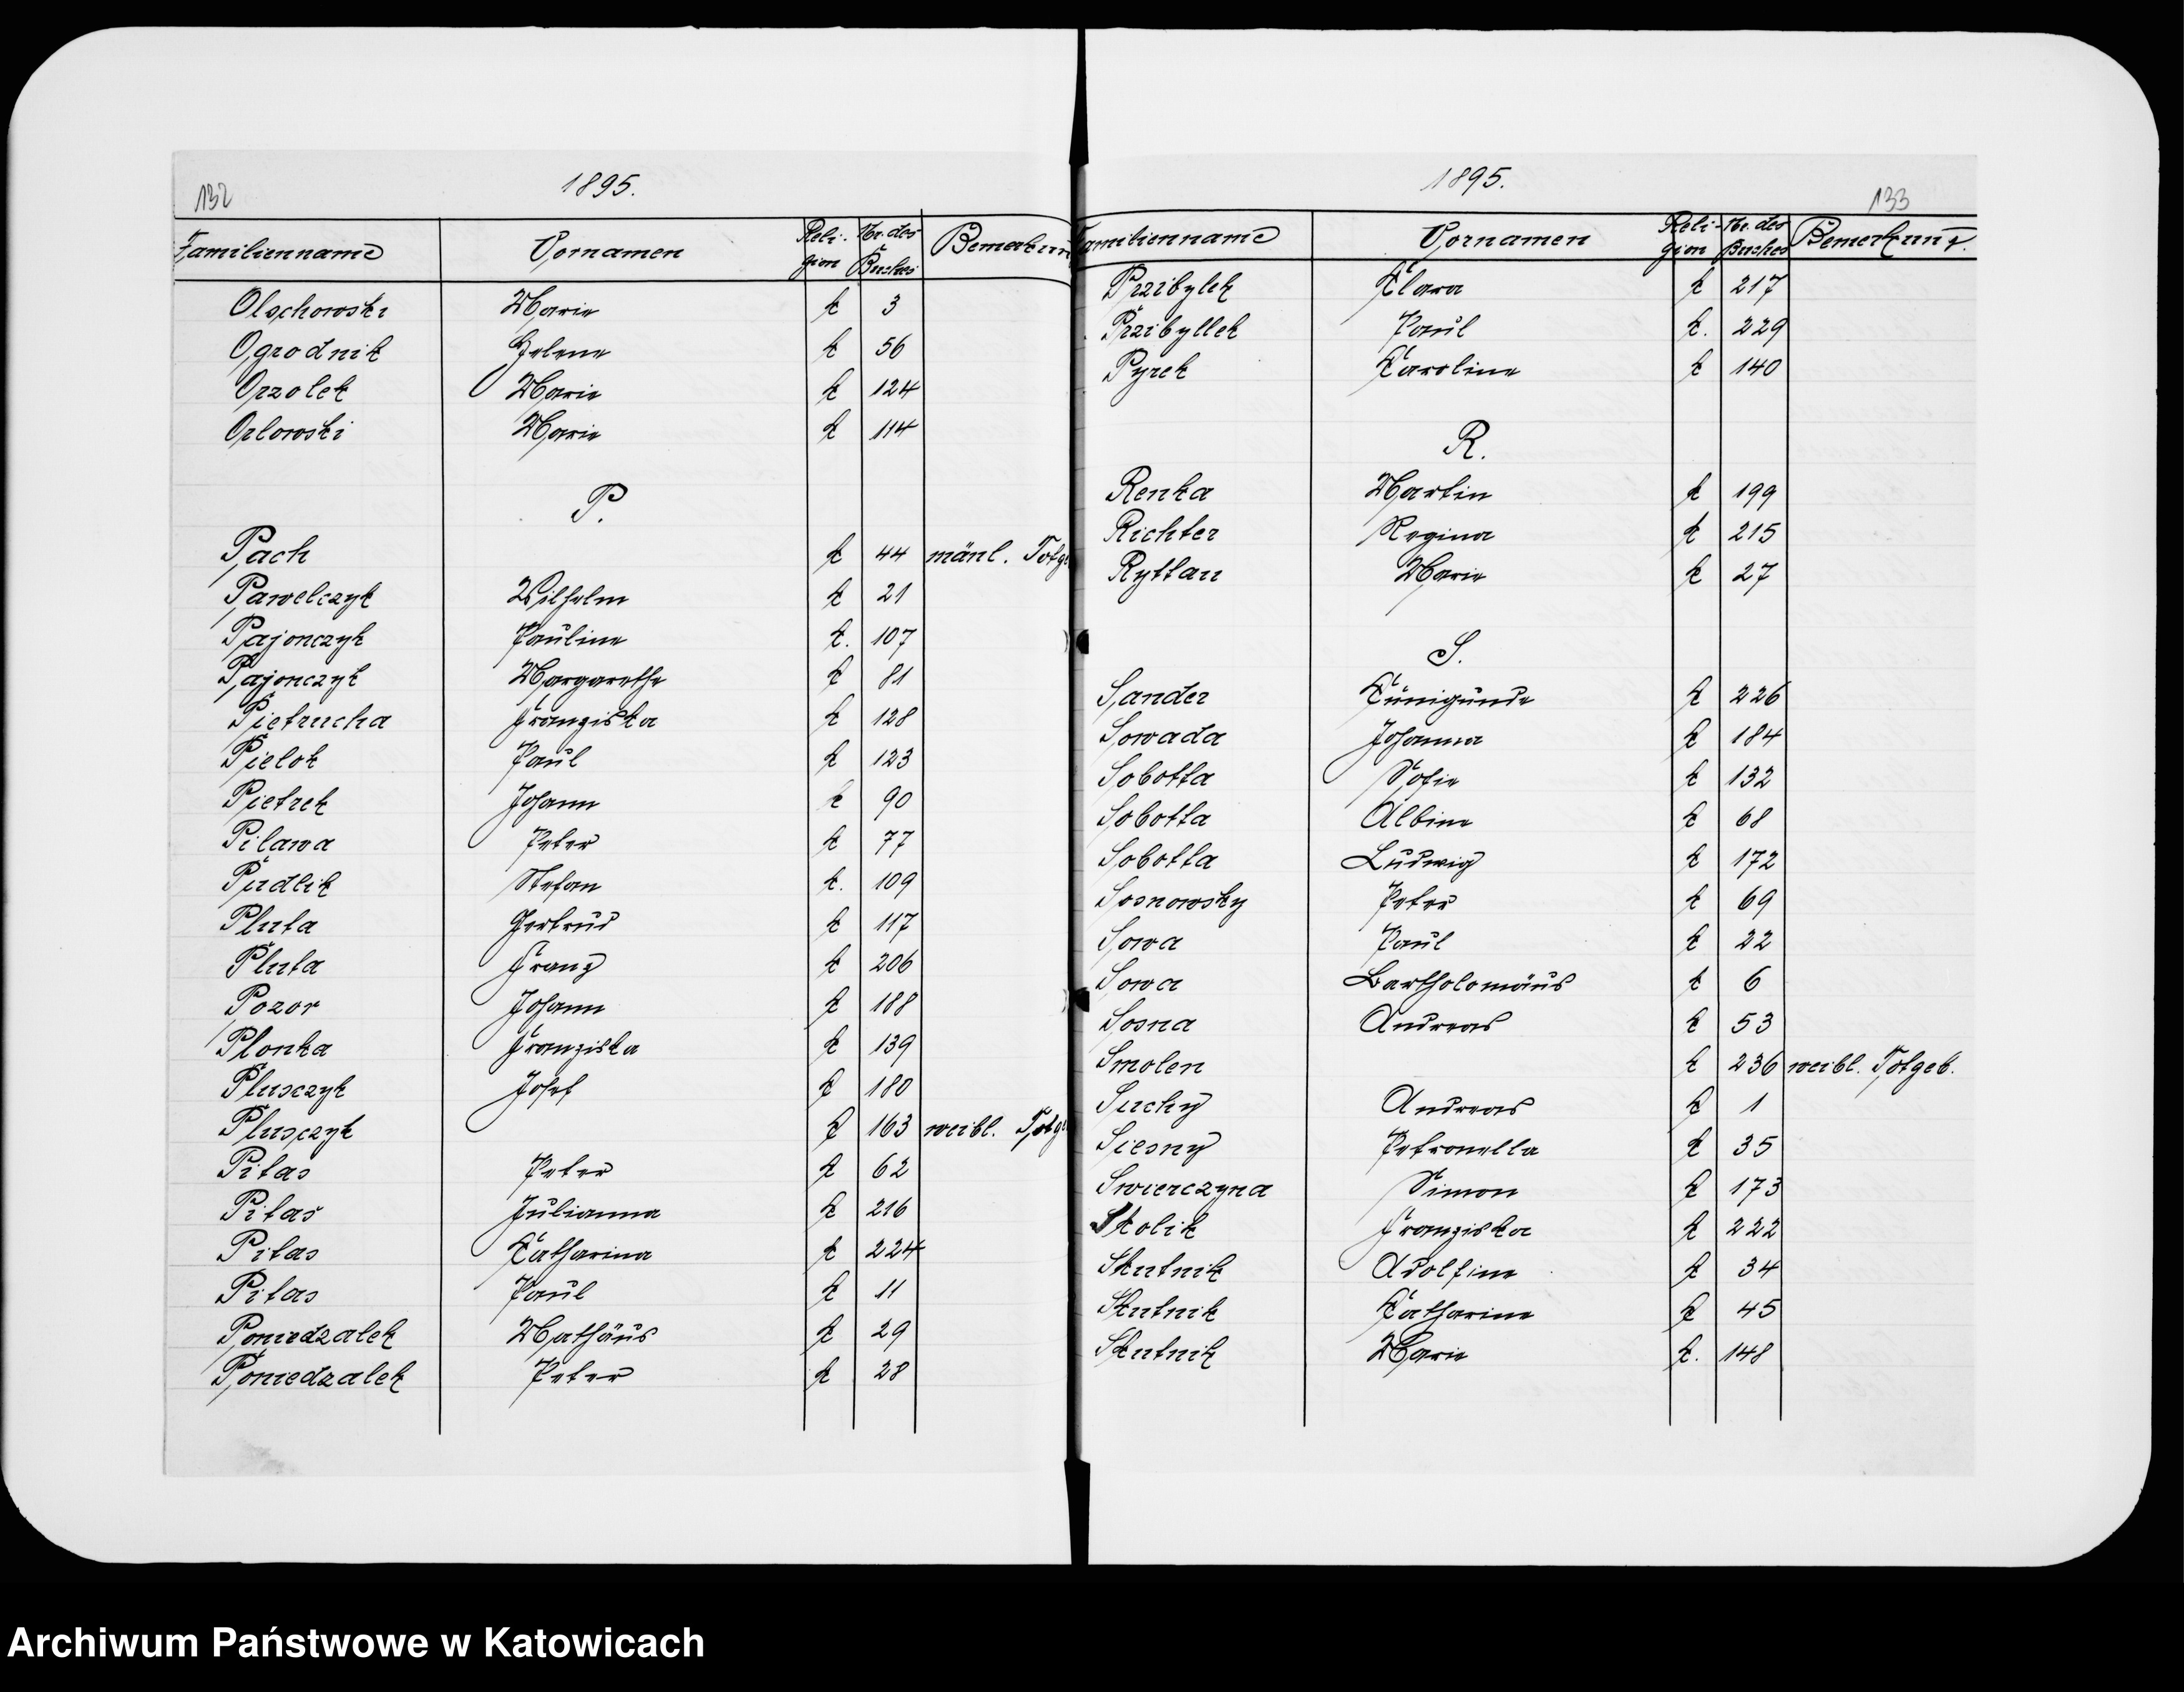 132
1895.
Familienname Vornamen Reli-gion Nr. des Buches Bemerkun
Olschowski Marie k 3
Ogrodnik Helene k 56
Orzolek Marie k 124
Orlowski Marie k 114
P.
Pach k 44 mänl. Totge
Pawelczyk Wilhelm k 21
Pajonczyk Pauline k. 107
Pajonczyk Margarethe k 81
Pietrucha Franziska k 128
Pielok Paul k 123
Pietrek Johann k 90
Pilawa Peter k 77
Pudlik Stefan k. 109
Pluta Gertrud k 117
Pluta Franz k 206
Pozor Johann k 188
Plonka Franziska k 139
Plusczyk Josef k 180
Plusczyk k 163 weibl. Totge
Pitas Peter k 62
Pitas Julianna k 216
Pitas Catharina k 224
Pitas Paul k 11
Poniedzalek Mathäus k 29
Poniedzalek Peter k 28
1895.
133
Familienname Vornamen Reli-gion Nr. des Buches Bemerkung.
Przibylek Klara k 217
Przibyllek Paul k. 229
Pyrek Karoline k 140
R.
Renka Martin k 199
Richter Regina k 215
Ryttau Marie k 27
S.
Sander Kunigunde k 226
Sowada Johanna k 184
Sobotta Sofie k 132
Sobotta Albine k 68
Sobotta Ludwig k 172
Sosnowsky Peter k 69
Sowa Paul k 22
Sowa Bartholomäus k 6
Sosna Andreas k 53
Smolen k 236 weibl. Totgeb.
Suchy Andreas k 1
Siesny Petronella k 35
Swierczyna Simon k 173
Skolik Franziska k 222
Skutnik Adolfine k 34
Skutnik Catharine k 45
Skutnik Marie k. 148
Archiwum Państwowe w Katowicach